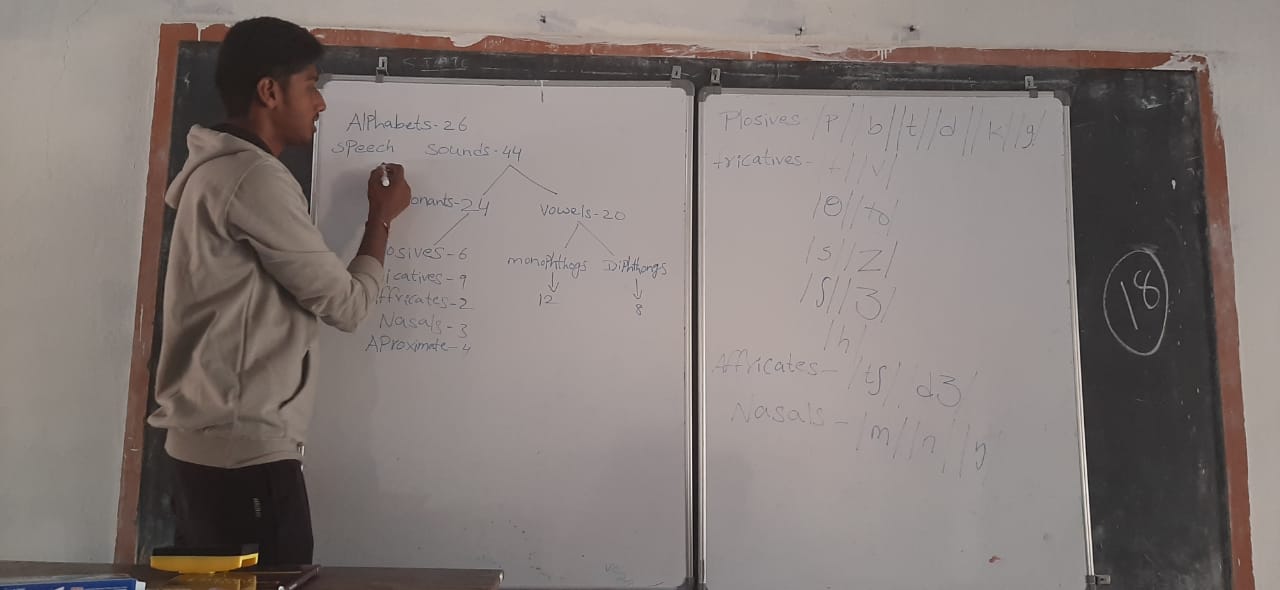 Alphabets-26
Speech Sounds-44
onants-24
Vowels-20
osives-6
icatives-9
ffricates-2
Nasals-3
AProximate-4
monophthogs
Diphthongs
12
8
Plosives- /p/ /b/ /t/ /d/ /k/ /g/
fricatives- /f/ /v/
/θ/
/s/ /z/
/ʃ/ /ʒ/
/h/
Affricates- /tʃ/ dʒ/
Nasals- /m/ /n/ /ŋ
18